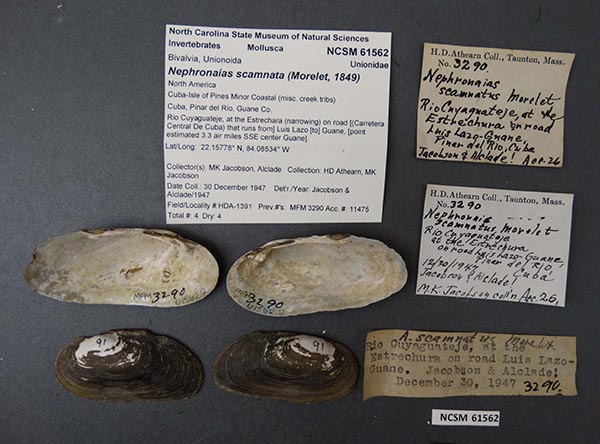 North Carolina State Museum of Natural Sciences
Invertebrates Mollusca NCSM 61562
Bivalvia, Unionoida Unionidae
Nephronaias scamnata (Morelet, 1849)
North America
Cuba-Isle of Pines Minor Coastal (misc. creek tribs)
Cuba, Pinar del Rio, Guane Co.
Rio Cuyaguateje, at the Estrechara (narrowing) on road [(Carretera
Central De Cuba) that runs from] Luis Lazo [to] Guane, [point
estimated 3.3 air miles SSE center Guane]
Lat/Long: 22.15778° N, 84.08534° W
Collector(s): MK Jacobson, Alclade Collection: HD Athearn, MK
Jacobson
Date Coll.: 30 December 1947 Det'r./Year: Jacobson &
Alclade/1947
Field/Locality #:HDA-1391 Prev.#'s: MFM 3290 Acc. #: 11475
Total #: 4 Dry: 4
H.D. Athearn Coll., Taunton, Mass.
No. 3290.
Nephronaias
scamnatus Morelet
Rio Cuyaguateje, at the
Estrechura on road
Luis Lazo-Guane,
Pinar del Rio, Cuba
Jacobson & Alclade! Acc. 26
H.D. Athearn Coll., Taunton, Mass.
No. 3290
Nephronais
scamnatus Morelet
Rio Cuyaguateje
at the Estrechura
on road Luis Lazo-Guane,
Pinar del Rio,
12/30/1947 Cuba
Jacobson & Alclade!
M.K. Jacobson coll'n Acc 26,
MFM 3290
3290
91
91
A. scamnatus Morelet
Rio Cuyaguateje, at the
Estrechura on road Luis Lazo-
Guane. Jacobson & Alclade!
December 30, 1947 3290.
NCSM 61562